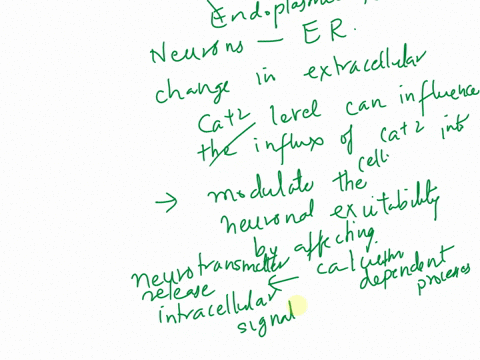 Endoplasm
Neurons — ER.
change in extracellular
Ca+2 level can influence
the influx of Ca+2 into
cell.
→ modulate the
neuronal exitability
by affecting
calcium dependent processes
neurotransmitter release ←
intracellular
signal